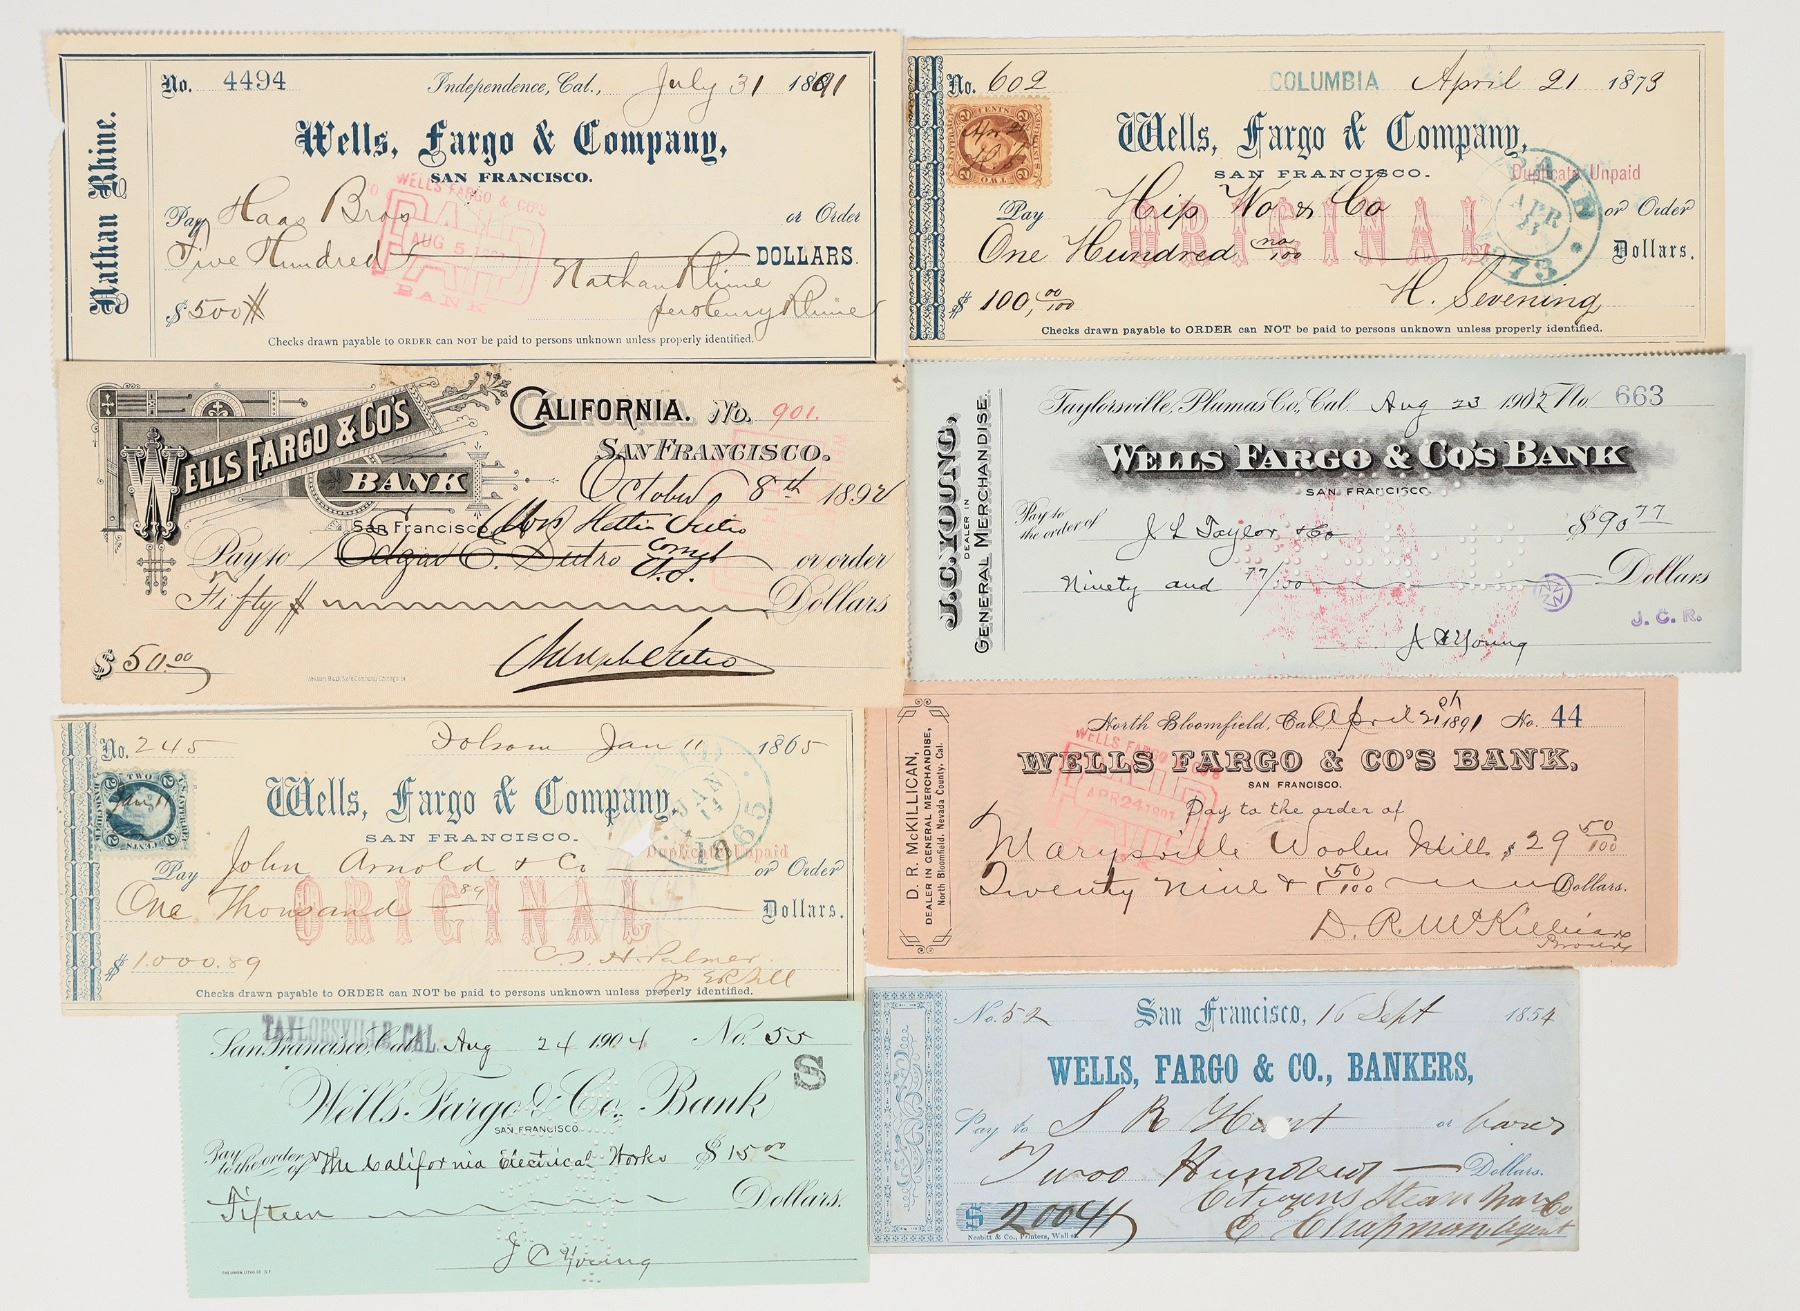 No. 4494
Independence, Cal., July 31 1891
Nathan Rhine.
Wells, Fargo & Company,
SAN FRANCISCO.
Pay Haas Bros or Order
Five Hundred DOLLARS.
WELLS FARGO & CO'S
PAID
AUG 5
BANK
Nathan Rhine
per Henry Rhine
$ 500
Checks drawn payable to ORDER can NOT be paid to persons unknown unless properly identified.
No. 602
COLUMBIA April 21 1873
Wells, Fargo & Company,
SAN FRANCISCO.
Duplicate Unpaid
Pay Hip Wo & Co or Order
ORIGINAL
One Hundred no/100 Dollars.
PAID
APR
73
$ 100,00/100
H. Sevening
Checks drawn payable to ORDER can NOT be paid to persons unknown unless properly identified.
WELLS FARGO & CO'S
BANK
San Francisco
CALIFORNIA. No. 901.
SAN FRANCISCO.
October 8th 1892
Mrs Hettie Sutro
Pay to Edgar E. Sutro or order
Fifty Dollars
$ 50.00
J. C. YOUNG,
DEALER IN
GENERAL MERCHANDISE.
Taylorsville, Plumas Co, Cal. Aug 23 1902 No. 663
WELLS FARGO & CO'S BANK
SAN FRANCISCO.
Pay to
the order of J L Taylor & Co $90 77
Ninety and 77/100 Dollars
J. C. R.
J C Young
No. 245
Folsom Jan 11 1865
TWO
Jan 11
Wells, Fargo & Company,
SAN FRANCISCO.
Duplicate Unpaid
Pay John Arnold & Co or Order
ORIGINAL
One Thousand 89 Dollars.
$ 1000.89
Checks drawn payable to ORDER can NOT be paid to persons unknown unless properly identified.
D. R. McKILLICAN,
DEALER IN GENERAL MERCHANDISE,
North Bloomfield, Nevada County, Cal.
North Bloomfield, Cal. April 21 1891 No. 44
WELLS FARGO & CO'S BANK,
SAN FRANCISCO.
WELLS FARGO & CO'S
PAID
APR 24
Pay to the order of
Marysville Woolen Mills $ 29 50/100
Twenty Nine & 50/100 Dollars.
D. R. McKillican
TAYLORSVILLE, CAL.
San Francisco, Cal. Aug 24 1904 No. 55
S
Wells Fargo & Co. Bank
SAN FRANCISCO.
Pay
to the order
of The California Electrical Works $ 15.00
Fifteen Dollars.
J C Young
No. 52
San Francisco, 16 Sept 1854
WELLS, FARGO & CO., BANKERS,
Pay to S R Hunt or bearer
Two Hundred Dollars.
Citizens Steam Nav Co
$ 200
C Chapman Agent
Nesbitt & Co., Printers, Wall st